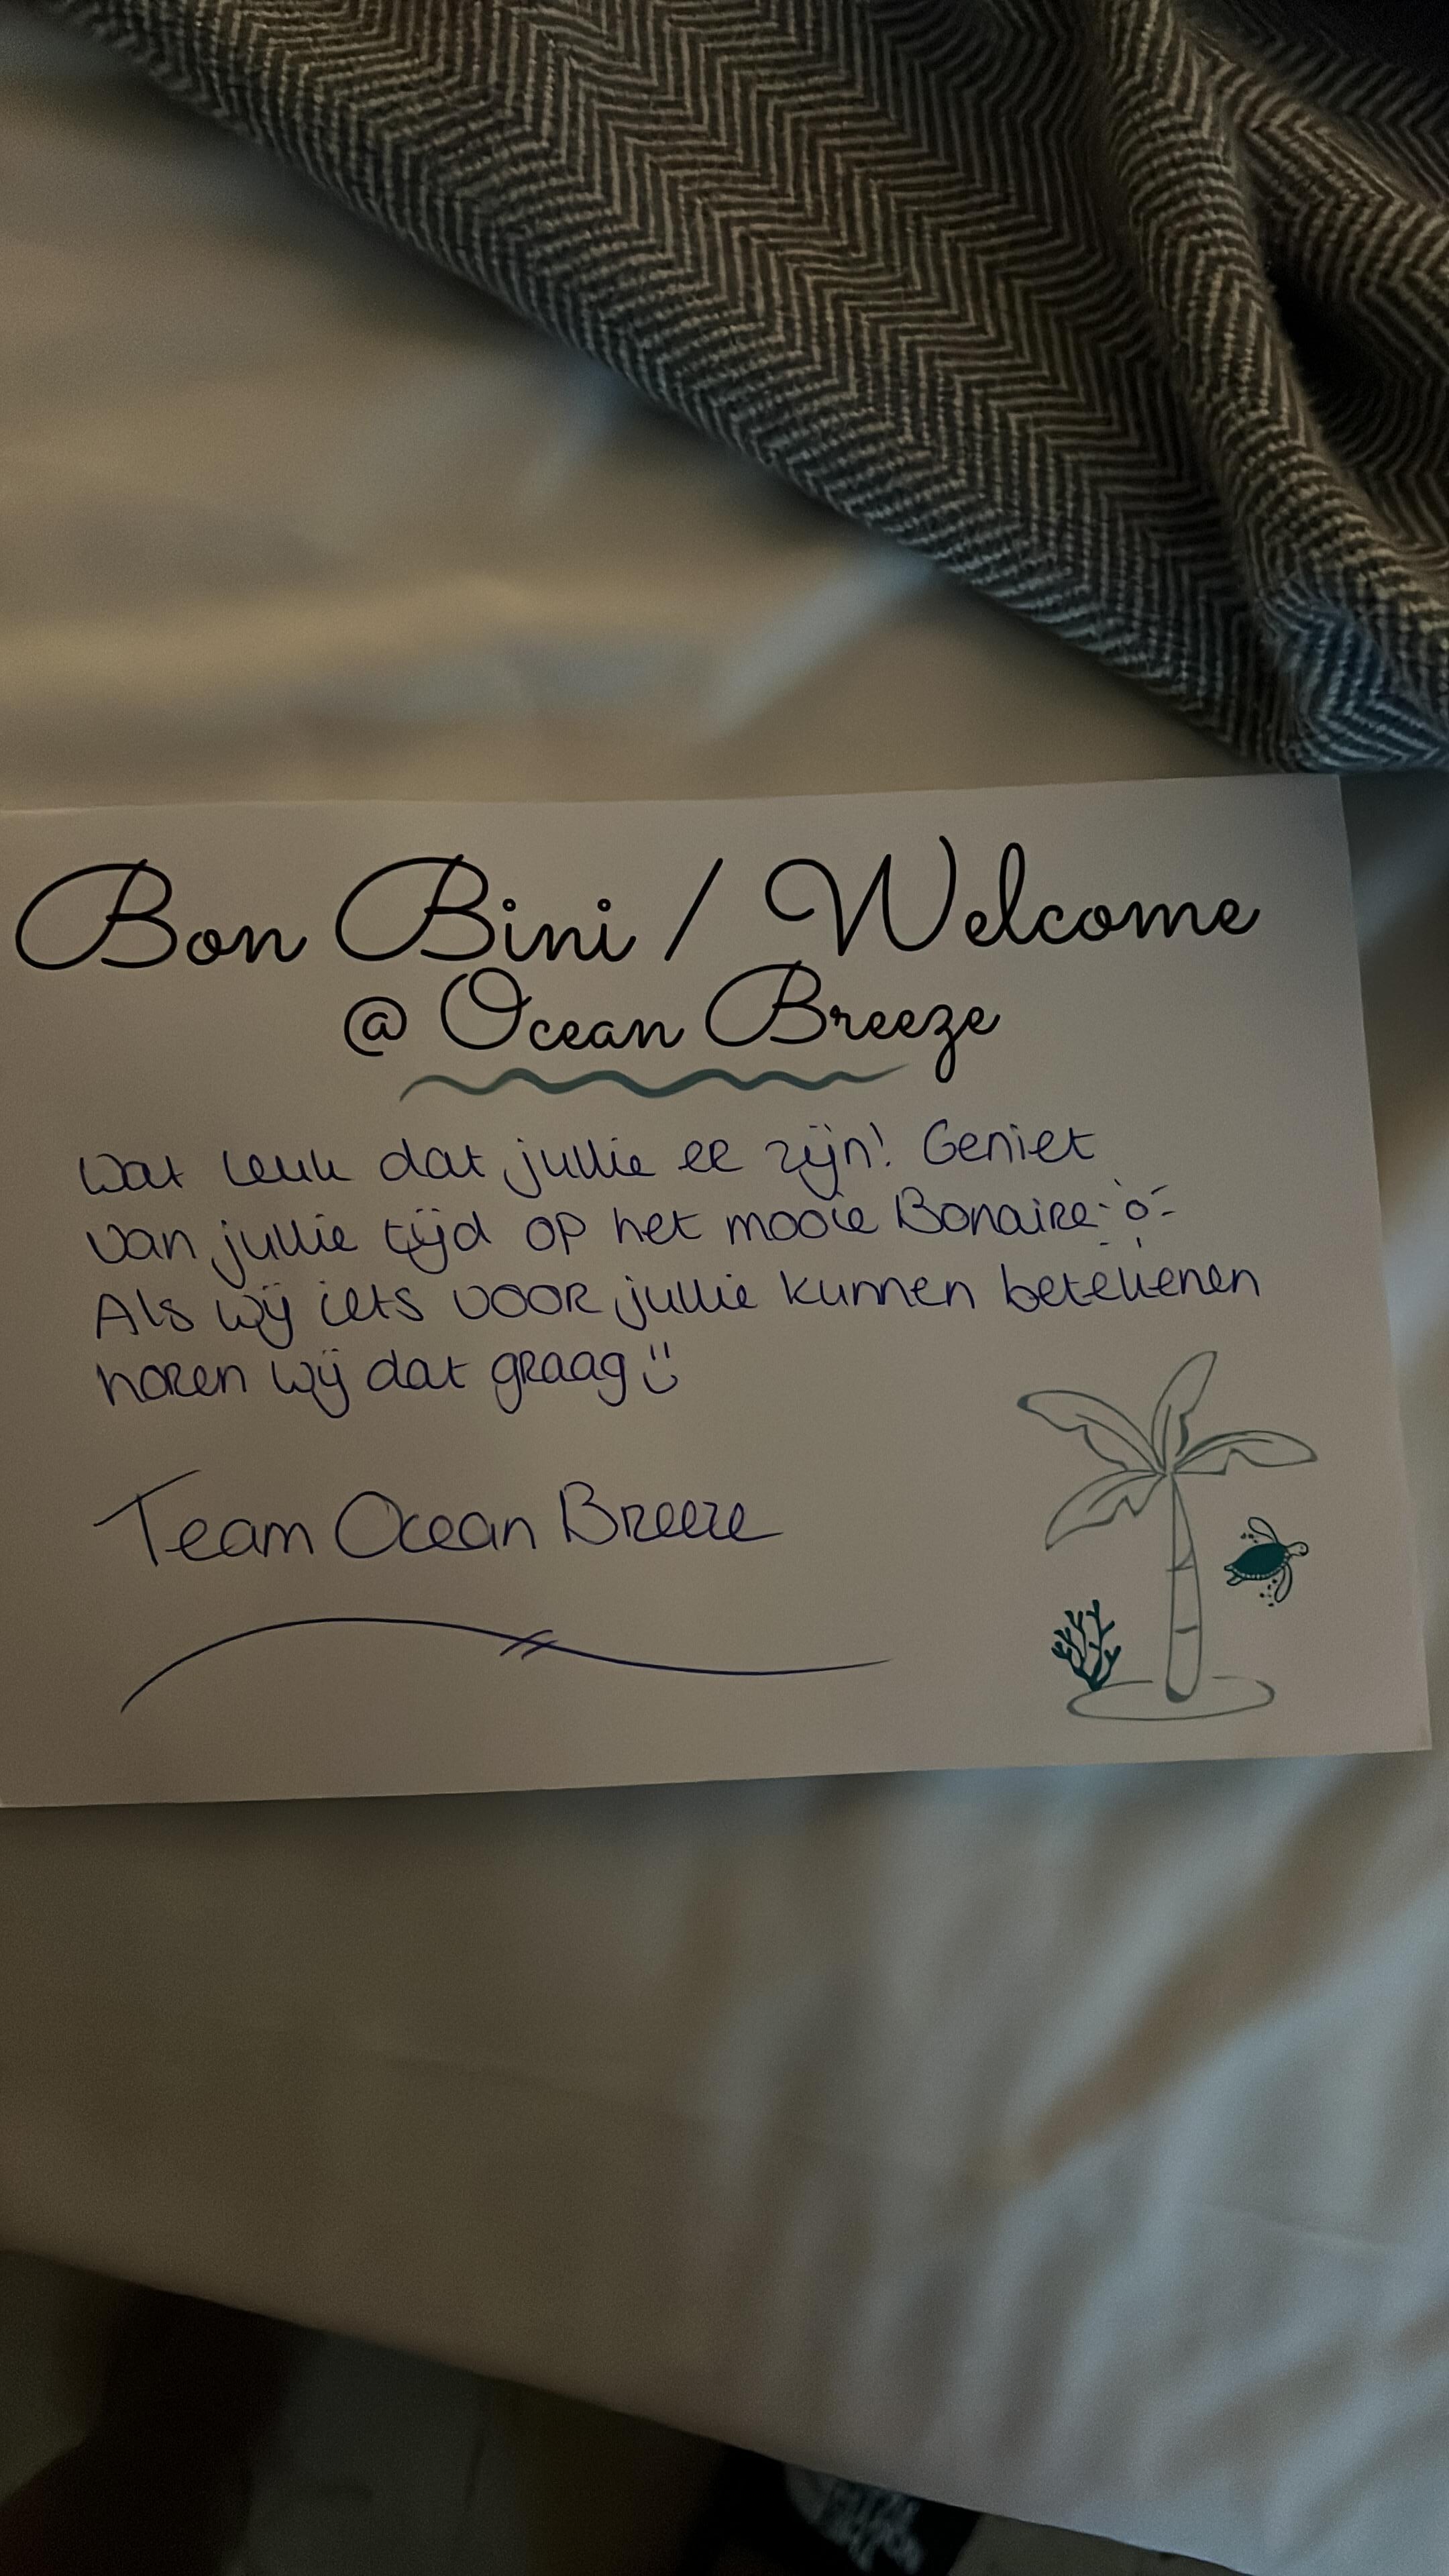 Bon Bini / Welcome
@ Ocean Breeze
Wat leuk dat jullie er zijn! Geniet
van jullie tijd op het mooie Bonaire
Als wij iets voor jullie kunnen betekenen
horen wij dat graag
Team Ocean Breeze